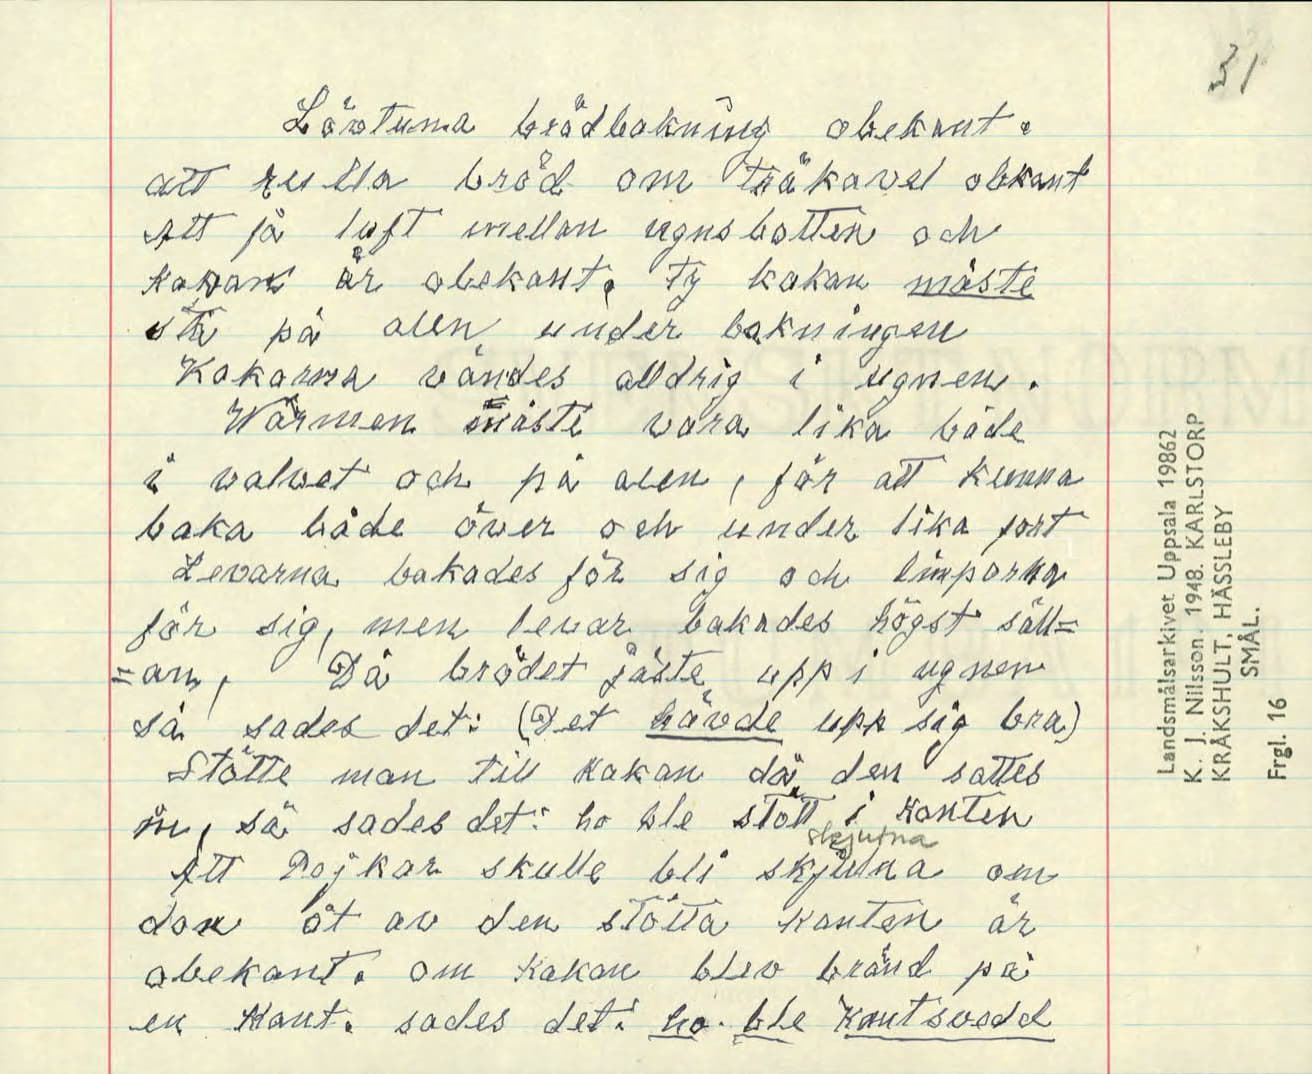 31
Lövtunna brödbakning obekant.
att rulla bröd om träkavel obkant
Att få luft mellan ugnsbotten och
kakan är obekant. Ty kakan måste
stå på alen under bakningen
Kakorna vändes alldrig i ugnen.
Wärmen måste vara lika både
i valvet och på alen, för att kunna
baka både över och under lika fort
Levarna bakades för sig och limporna
för sig, men levar bakades högst säll=
an, Då brödet jäste upp i ugnen
så sades det: (Det hävde upp sig bra)
Stötte man till kakan då den sattes
in, så sades det: ho ble stött i kanten
skjutna
Att Pojkar skulle bli skjutna om
dom åt av den stötta kanten är
obekant. om kakan blev bränd på
en kant. sades det: ho ble kantsvedd
Landsmålsarkivet Uppsala 19862
K. J. Nilsson. 1948. KARLSTORP
KRÅKSHULT, HÄSSLEBY
SMÅL.
Frgl. 16